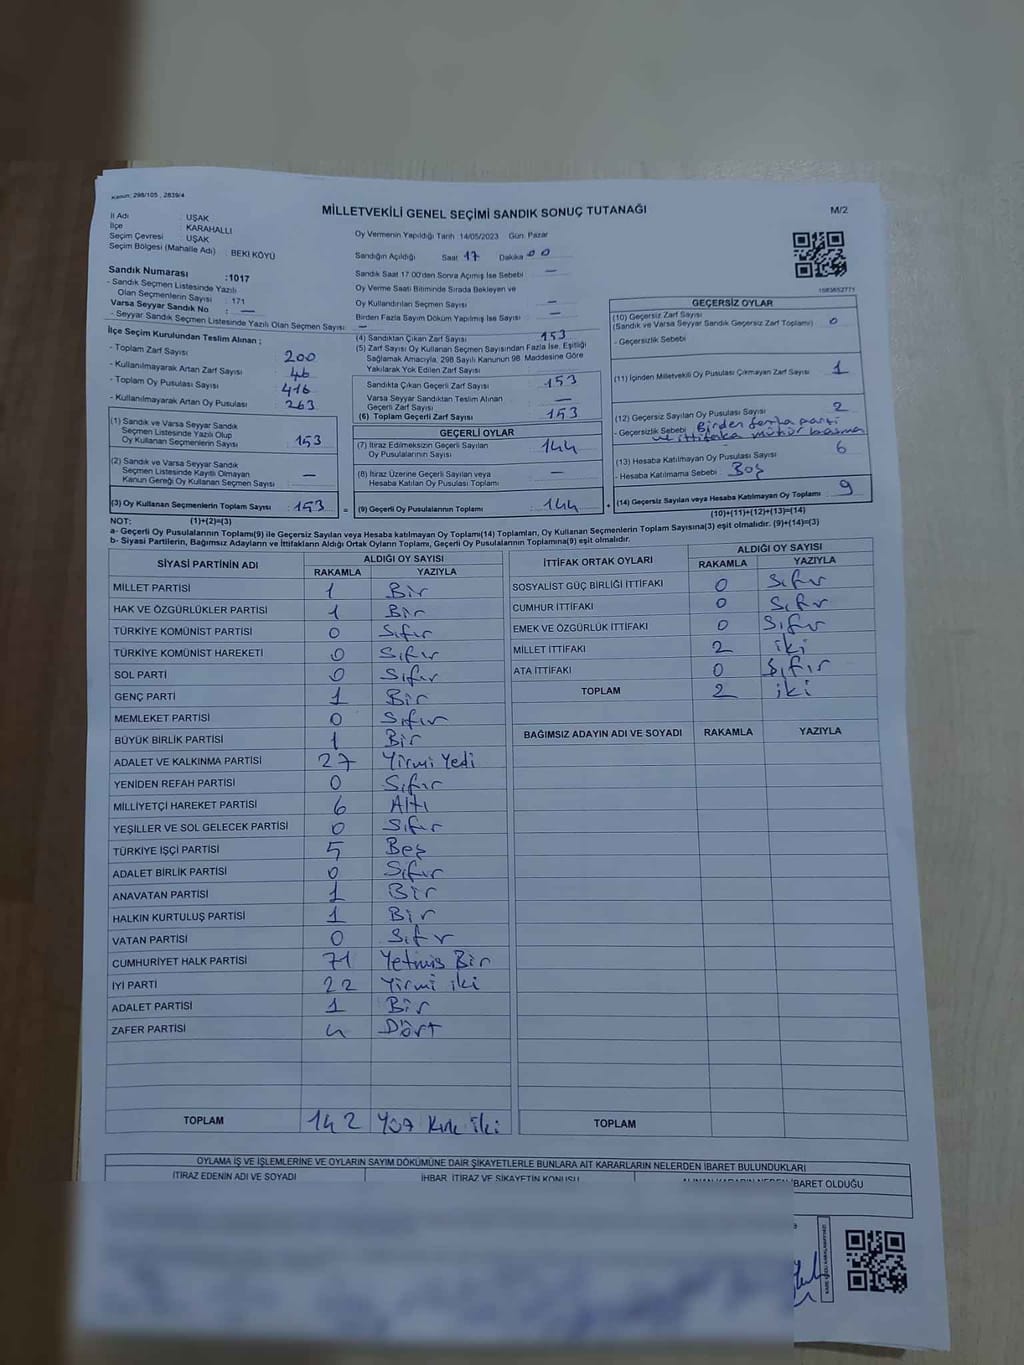 Kanun: 298/105 , 2839/4
MİLLETVEKİLİ GENEL SEÇİMİ SANDIK SONUÇ TUTANAĞI
M/2
İl Adı : UŞAK
İlçe : KARAHALLI
Seçim Çevresi : UŞAK
Seçim Bölgesi (Mahalle Adı) : BEKİ KÖYÜ
Sandık Numarası :1017
- Sandık Seçmen Listesinde Yazılı
Olan Seçmenlerin Sayısı : 171
Varsa Seyyar Sandık No : —
- Seyyar Sandık Seçmen Listesinde Yazılı Olan Seçmen Sayısı: —
Oy Vermenin Yapıldığı Tarih 14/05/2023 Gün: Pazar
Sandığın Açıldığı Saat 17 Dakika 00
Sandık Saat 17.00'den Sonra Açımış İse Sebebi —
Oy Verme Saati Bitiminde Sırada Bekleyen ve
Oy Kullandırılan Seçmen Sayısı —
Birden Fazla Sayım Döküm Yapılmış İse Sayısı —
1583652771
İlçe Seçim Kurulundan Teslim Alınan ;
- Toplam Zarf Sayısı 200
- Kullanılmayarak Artan Zarf Sayısı 46
- Toplam Oy Pusulası Sayısı 416
- Kullanılmayarak Artan Oy Pusulası 263
(1) Sandık ve Varsa Seyyar Sandık
Seçmen Listesinde Yazılı Olup
Oy Kullanan Seçmenlerin Sayısı : 153
(2) Sandık ve Varsa Seyyar Sandık
Seçmen Listesinde Kayıtlı Olmayan
Kanun Gereği Oy Kullanan Seçmen Sayısı : —
(3) Oy Kullanan Seçmenlerin Toplam Sayısı : 153
(4) Sandıktan Çıkan Zarf Sayısı 153
(5) Zarf Sayısı Oy Kullanan Seçmen Sayısından Fazla İse, Eşitliği
Sağlamak Amacıyla, 298 Sayılı Kanunun 98. Maddesine Göre
Yakılarak Yok Edilen Zarf Sayısı
Sandıkta Çıkan Geçerli Zarf Sayısı : 153
Varsa Seyyar Sandıktan Teslim Alınan
Geçerli Zarf Sayısı : —
(6) Toplam Geçerli Zarf Sayısı : 153
GEÇERLİ OYLAR
(7) İtiraz Edilmeksizin Geçerli Sayılan
Oy Pusulalarının Sayısı : 144
(8) İtiraz Üzerine Geçerli Sayılan veya
Hesaba Katılan Oy Pusulası Toplamı : —
= (9) Geçerli Oy Pusulalarının Toplamı : 144
GEÇERSİZ OYLAR
(10) Geçersiz Zarf Sayısı
(Sandık ve Varsa Seyyar Sandık Geçersiz Zarf Toplamı) : 0
- Geçersizlik Sebebi
(11) İçinden Milletvekili Oy Pusulası Çıkmayan Zarf Sayısı : 1
(12) Geçersiz Sayılan Oy Pusulası Sayısı : 2
- Geçersizlik Sebebi : Birden fazla parti
ve ittifaka mühür basma
(13) Hesaba Katılmayan Oy Pusulası Sayısı : 6
- Hesaba Katılmama Sebebi : Boş
+ (14) Geçersiz Sayılan veya Hesaba Katılmayan Oy Toplamı : 9
NOT: (1)+(2)=(3)
(10)+(11)+(12)+(13)=(14)
a- Geçerli Oy Pusulalarının Toplamı(9) ile Geçersiz Sayılan veya Hesaba katılmayan Oy Toplamı(14) Toplamları, Oy Kullanan Seçmenlerin Toplam Sayısına(3) eşit olmalıdır. (9)+(14)=(3)
b- Siyasi Partilerin, Bağımsız Adayların ve İttifakların Aldığı Ortak Oyların Toplamı, Geçerli Oy Pusulalarının Toplamına(9) eşit olmalıdır.
SİYASİ PARTİNİN ADI ALDIĞI OY SAYISI
RAKAMLA YAZIYLA
MİLLET PARTİSİ 1 Bir
HAK VE ÖZGÜRLÜKLER PARTİSİ 1 Bir
TÜRKİYE KOMÜNİST PARTİSİ 0 Sıfır
TÜRKİYE KOMÜNİST HAREKETİ 0 Sıfır
SOL PARTİ 0 Sıfır
GENÇ PARTİ 1 Bir
MEMLEKET PARTİSİ 0 Sıfır
BÜYÜK BİRLİK PARTİSİ 1 Bir
ADALET VE KALKINMA PARTİSİ 27 Yirmi Yedi
YENİDEN REFAH PARTİSİ 0 Sıfır
MİLLİYETÇİ HAREKET PARTİSİ 6 Altı
YEŞİLLER VE SOL GELECEK PARTİSİ 0 Sıfır
TÜRKİYE İŞÇİ PARTİSİ 5 Beş
ADALET BİRLİK PARTİSİ 0 Sıfır
ANAVATAN PARTİSİ 1 Bir
HALKIN KURTULUŞ PARTİSİ 1 Bir
VATAN PARTİSİ 0 Sıfır
CUMHURİYET HALK PARTİSİ 71 Yetmiş Bir
İYİ PARTİ 22 Yirmi iki
ADALET PARTİSİ 1 Bir
ZAFER PARTİSİ 4 Dört
TOPLAM 142 Yüz Kırk İki
İTTİFAK ORTAK OYLARI ALDIĞI OY SAYISI
RAKAMLA YAZIYLA
SOSYALİST GÜÇ BİRLİĞİ İTTİFAKI 0 Sıfır
CUMHUR İTTİFAKI 0 Sıfır
EMEK VE ÖZGÜRLÜK İTTİFAKI 0 Sıfır
MİLLET İTTİFAKI 2 iki
ATA İTTİFAKI 0 Sıfır
TOPLAM 2 iki
BAĞIMSIZ ADAYIN ADI VE SOYADI RAKAMLA YAZIYLA
TOPLAM
OYLAMA İŞ VE İŞLEMLERİNE VE OYLARIN SAYIM DÖKÜMÜNE DAİR ŞİKAYETLERLE BUNLARA AİT KARARLARIN NELERDEN İBARET BULUNDUKLARI
İTİRAZ EDENİN ADI VE SOYADI İHBAR, İTİRAZ VE ŞİKAYETİN KONUSU ALINAN KARARIN NEDEN İBARET OLDUĞU